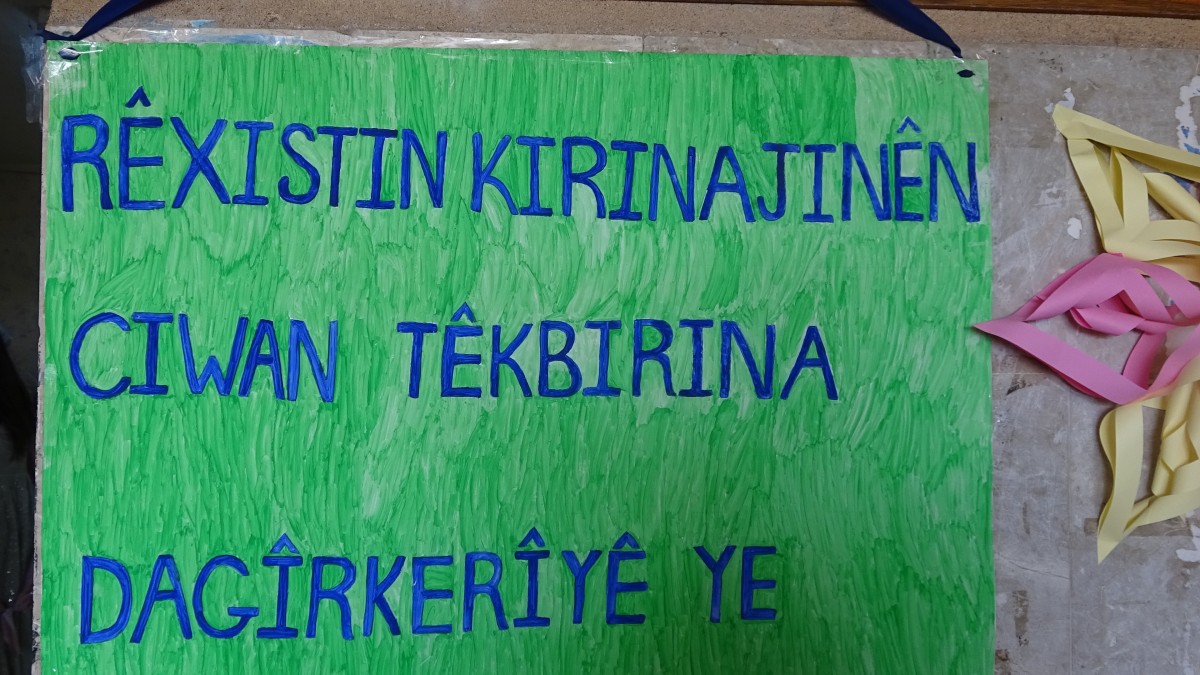 RÊXISTIN KIRINAJINÊN
CIWAN TÊKBIRINA
DAGÎRKERÎYÊ YE